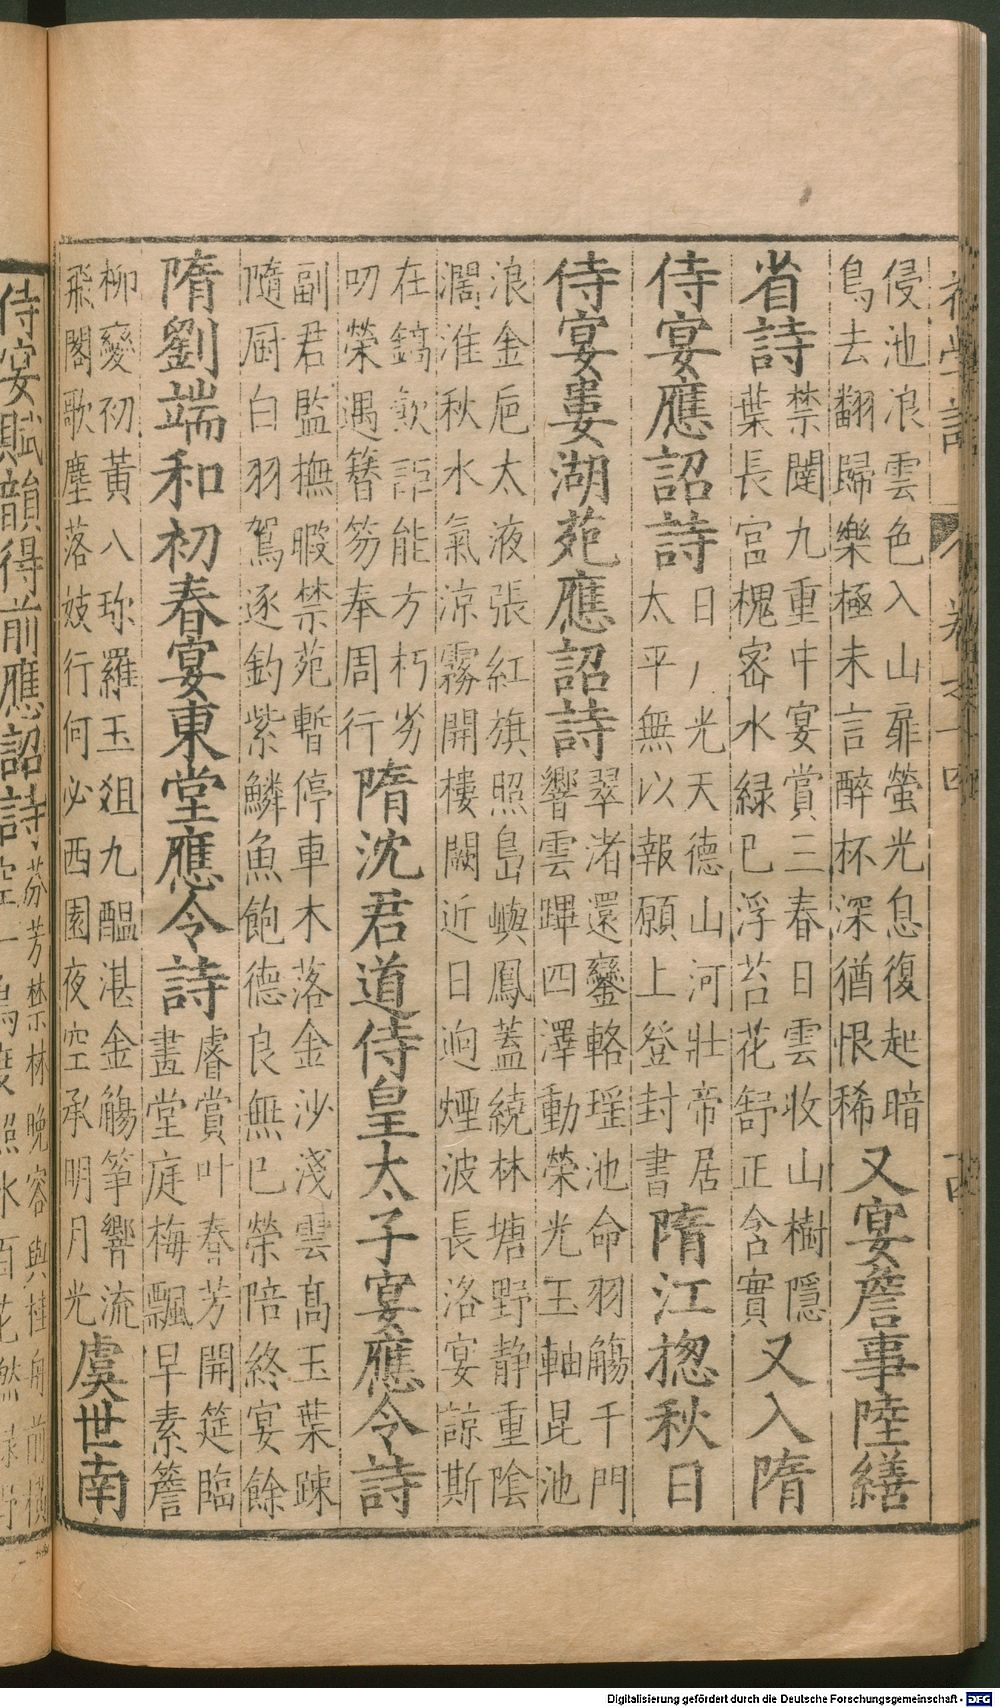 侵池浪雲色入山扉螢光息復起暗
鳥去翻歸樂極未言醉杯深猶恨稀
又宴詹事陸繕
省詩
禁闥九重中宴賞三春日雲收山樹隱
葉長宮槐密水綠巳浮苔花舒正含實
又入隋
侍宴應詔詩
日月光天德山河壯帝居
太平無以報願上登封書
隋江揔秋日
侍宴婁湖苑應詔詩
翠渚還鑾輅瑶池命羽觴千門
響雲蹕四澤動榮光玉軸昆池
浪金巵太液張紅旗照島嶼鳳蓋繞林塘野静重陰
濶淮秋水氣涼霧開樓闕近日逈煙波長洛宴諒斯
在鎬歡詎能方朽劣
叨榮遇簪笏奉周行
隋沈君道侍皇太子宴應令詩
副君監撫暇禁苑暫停車木落金沙淺雲髙玉葉踈
隨厨白羽駕逐釣紫鱗魚飽德良無巳榮陪終宴餘
隋劉端和初春宴東堂應令詩
睿賞叶春芳開筵臨
畫堂庭梅飄早素簷
柳變初黃八珎羅玉俎九醖湛金觴筝響流
飛閣歌塵落妓行何必西園夜空承明月光
虞世南
侍宴賦韻得前應詔詩
芬芳禁林晚容與桂舟前橫
空一鳥度照水百花然緑野